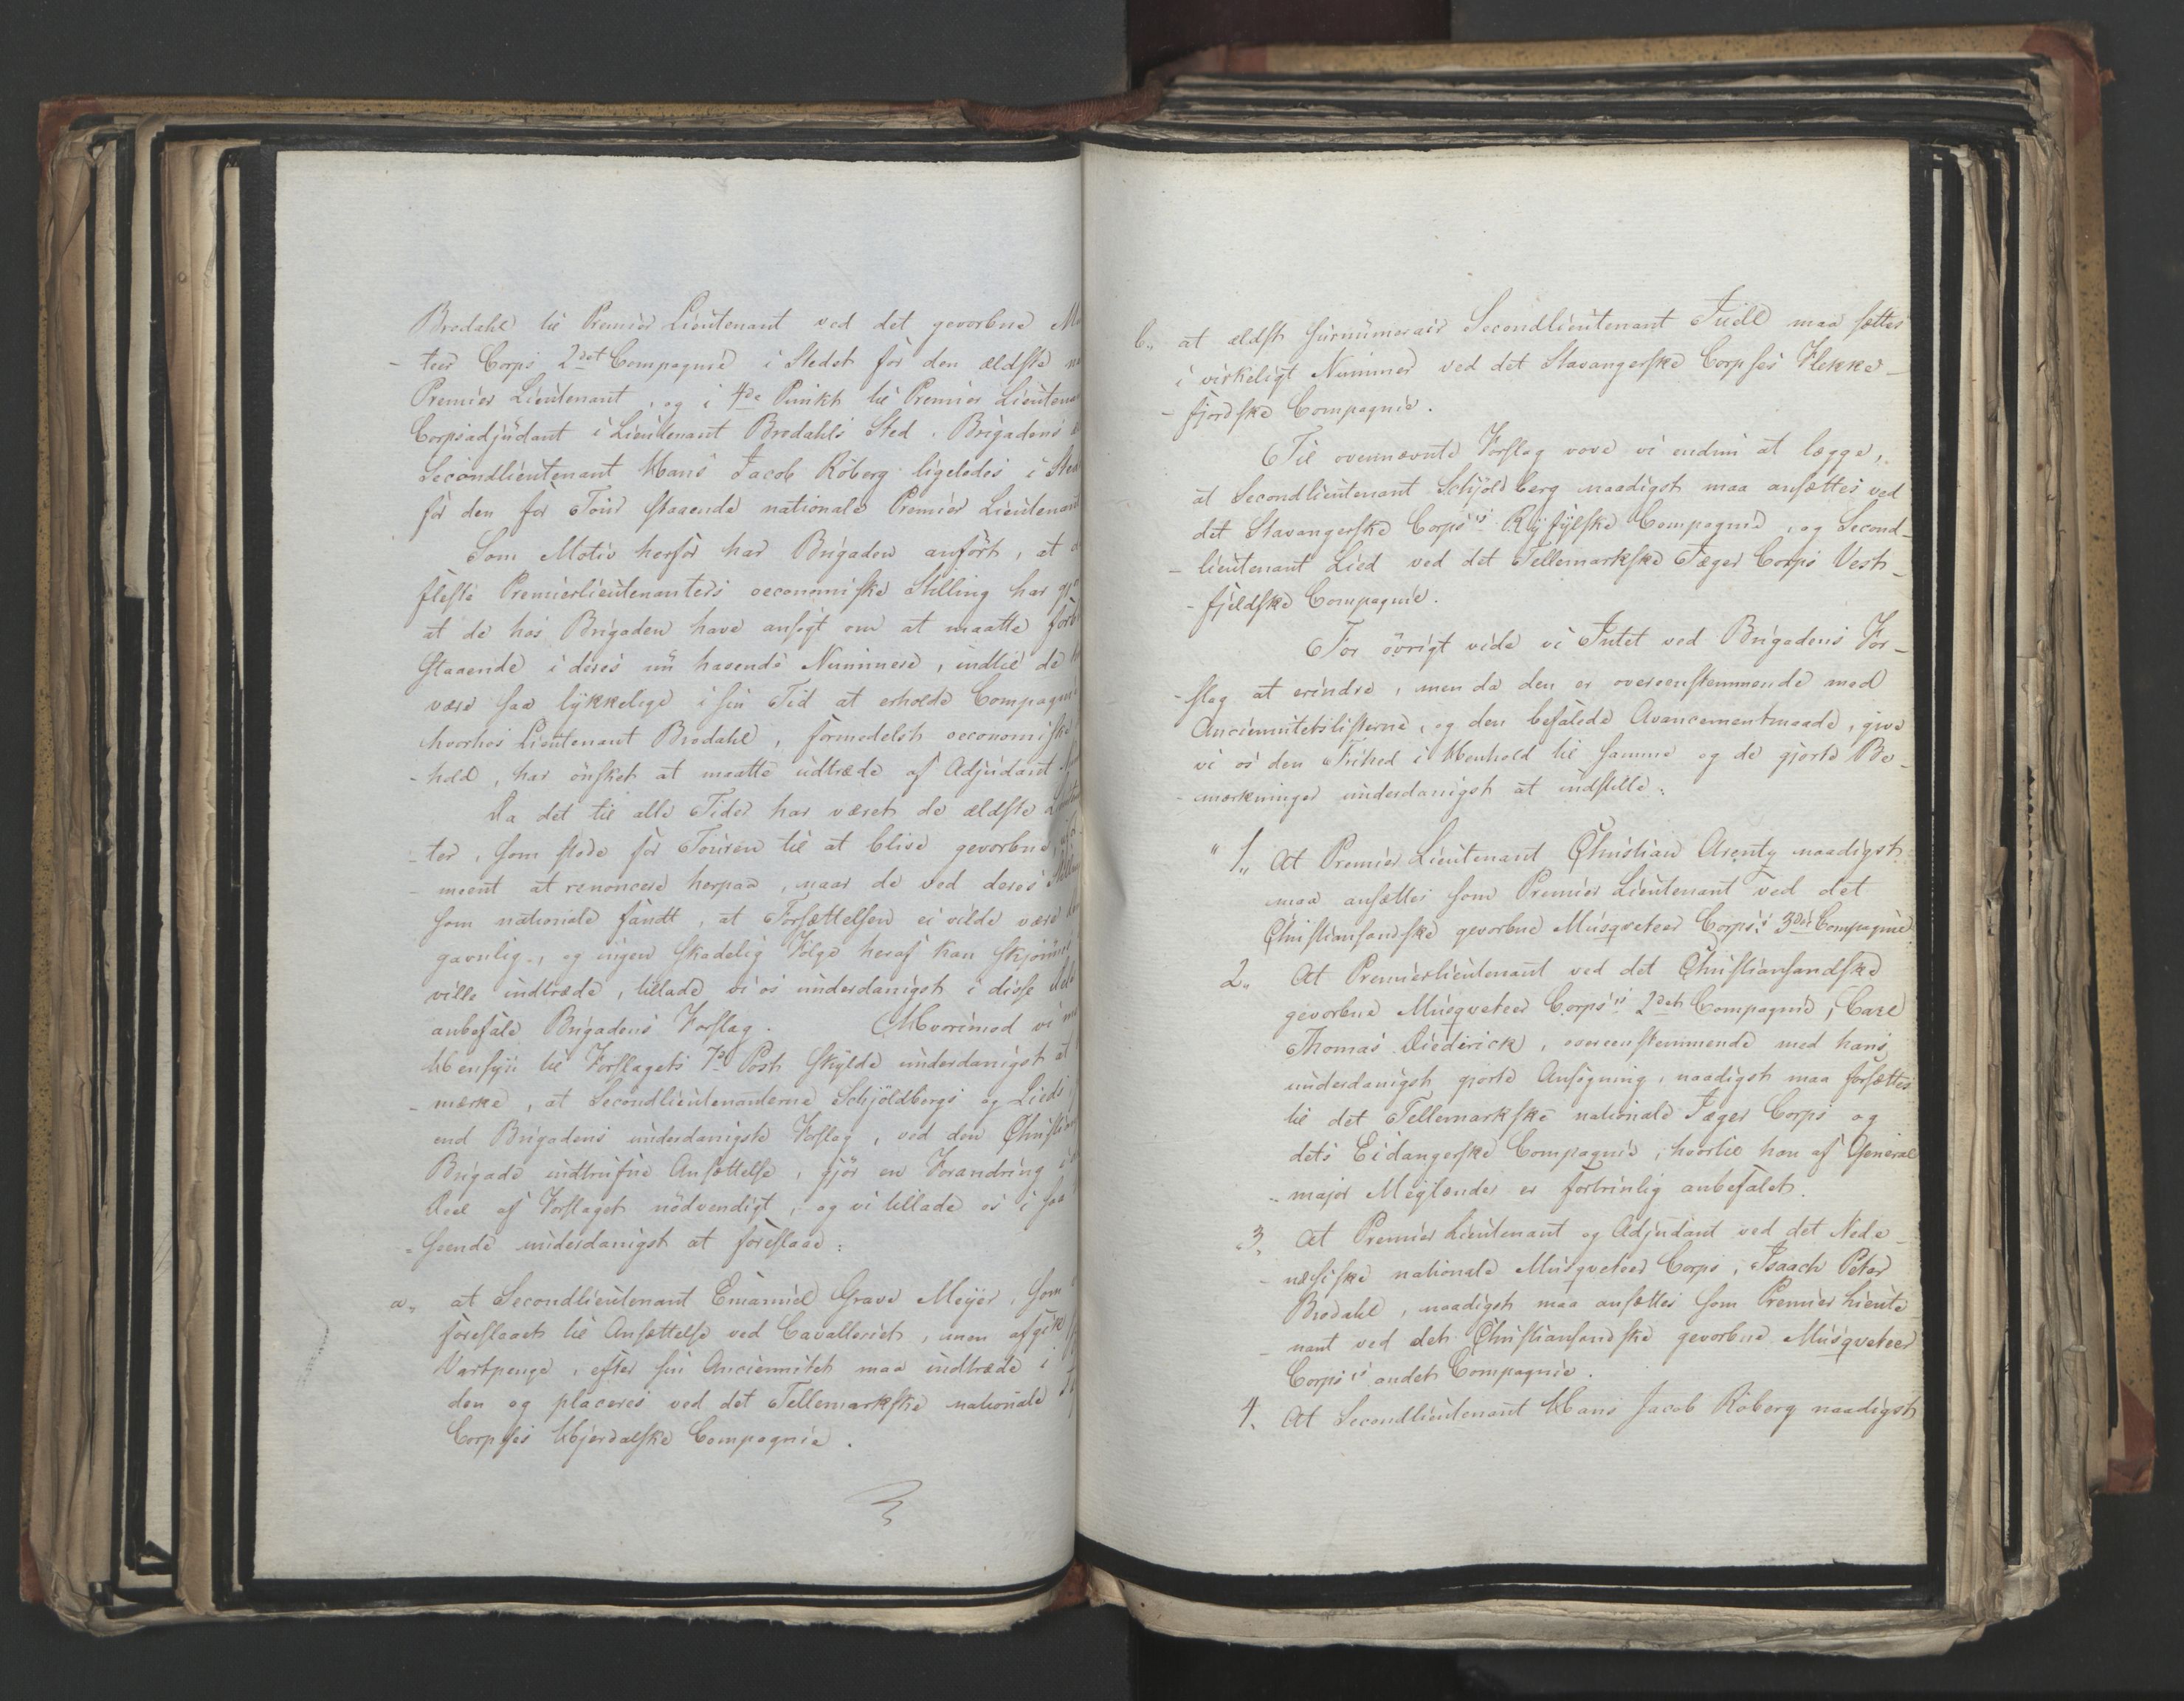 Bredahl til Premier Lieutenant ved det gevorbne
-teer Corps 2det Compagnie i Stedet for den ældste
Premier Lieutenant, og i 4de Punkt til Premier
Corpsadjudant i Lieutenant Bredahls Sted, Brigadens
Secondlieutenant Hans Jacob Roberg ligeledes i
for den for Tour staaende nationale Premier Lieutenant
Som Motiv herfor har Brigaden anført, at
fleste Premierlieutenanters oeconomiske Stilling har
at de hos Brigaden have ansøgt om at maatte
staaende i deres nu havende Nummere, indtil de
være saa lykkelige i sin Tid at erholde
hvorhos Lieutenant Bredahl, formedelst oeconomiske
-hold, har ønsket at maatte udtræde af Adjudant
Da det til alle Tider har været de ældste
-ter, som stode for Touren til at blive gevorbne,
-meent at renoncere herpaa, naar de ved deres
som nationale fandt, at Forsættelsen ei vilde være
gavnlig, og ingen skadelig Følge heraf kan
ville indtræde, tillade vi os underdanigst i disse
anbefale Brigadens Forslag. Hvorimod vi
Hensyn til Forslagets 7de Post skylde underdanigst at
-mærke, at Secondlieutenanterne Schjöldbergs og Lieds
end Brigadens underdanigste Forslag, ved den
Brigade indtrufne Ansættelse, gjør en Forandring i
Deel af Forslaget nødvendigt, og vi tillade os i saa
-seende underdanigst at foreslaae:
a,, at Secondlieutenant Emanuel Grave Meyer, som
foreslaaet til Ansættelse ved Cavalleriet, men afgik
Vartpenge, efter sin Anciennitet maa indtræde i
den og placeres ved det Tellemarkske nationale
Corpses Hjerdalske Compagnie.
b,, at ældst surnumerair Secondlieutenant Juell maa sættes
i virkeligt Nummer ved det Stavangerske Corpses Flekke-
-fjordske Compagnie.
Til ovennævnte Forslag vove vi endnu at lægge,
at Secondlieutenant Schjöldberg naadigst maa ansættes ved
det Stavangerske Corps's Ryfylske Compagnie, og Second-
-lieutenant Lied ved det Tellemarkske Jæger Corps Vest-
-fjeldske Compagnie.
For övrigt vide vi Intet ved Brigadens For-
-slag at erindre, men da den er overeenstemmende med
Anciennitetslisterne, og den befalede Avancementmaade, give
vi os den Frihed i Henhold til samme og de gjorte Be-
-mærkninger underdanigst at indstille:
" 1,, At Premier Lieutenant Christian Arentz naadigst
maa ansættes som Premier Lieutenant ved det
Christiansandske gevorbne Musqveteer Corps's 3die Compagnie
2,, At Premierlieutenant ved det Christiansandske
gevorbne Musqveteer Corps's 2det Compagnie, Carl
Thomas Diederick, overeenstemmende med hans
underdanigst gjorte Ansøgning, naadigst maa forsættes
til det Tellemarkske nationale Jæger Corps og
dets Eidangerske Compagnie, hvortil han af General
-major Meijlænder er fortrinlig anbefalet.
3, At Premier Lieutenant og Adjudant ved det Nede-
-næsiske nationale Musqveteer Corps, Isaach Peter
Bredahl, naadigst maa ansættes som Premier Lieute-
-nant ved det Christiansandske gevorbne Musqveteer
Corps's andet Compagnie.
4, At Secondlieutenant Hans Jacob Roberg naadigst